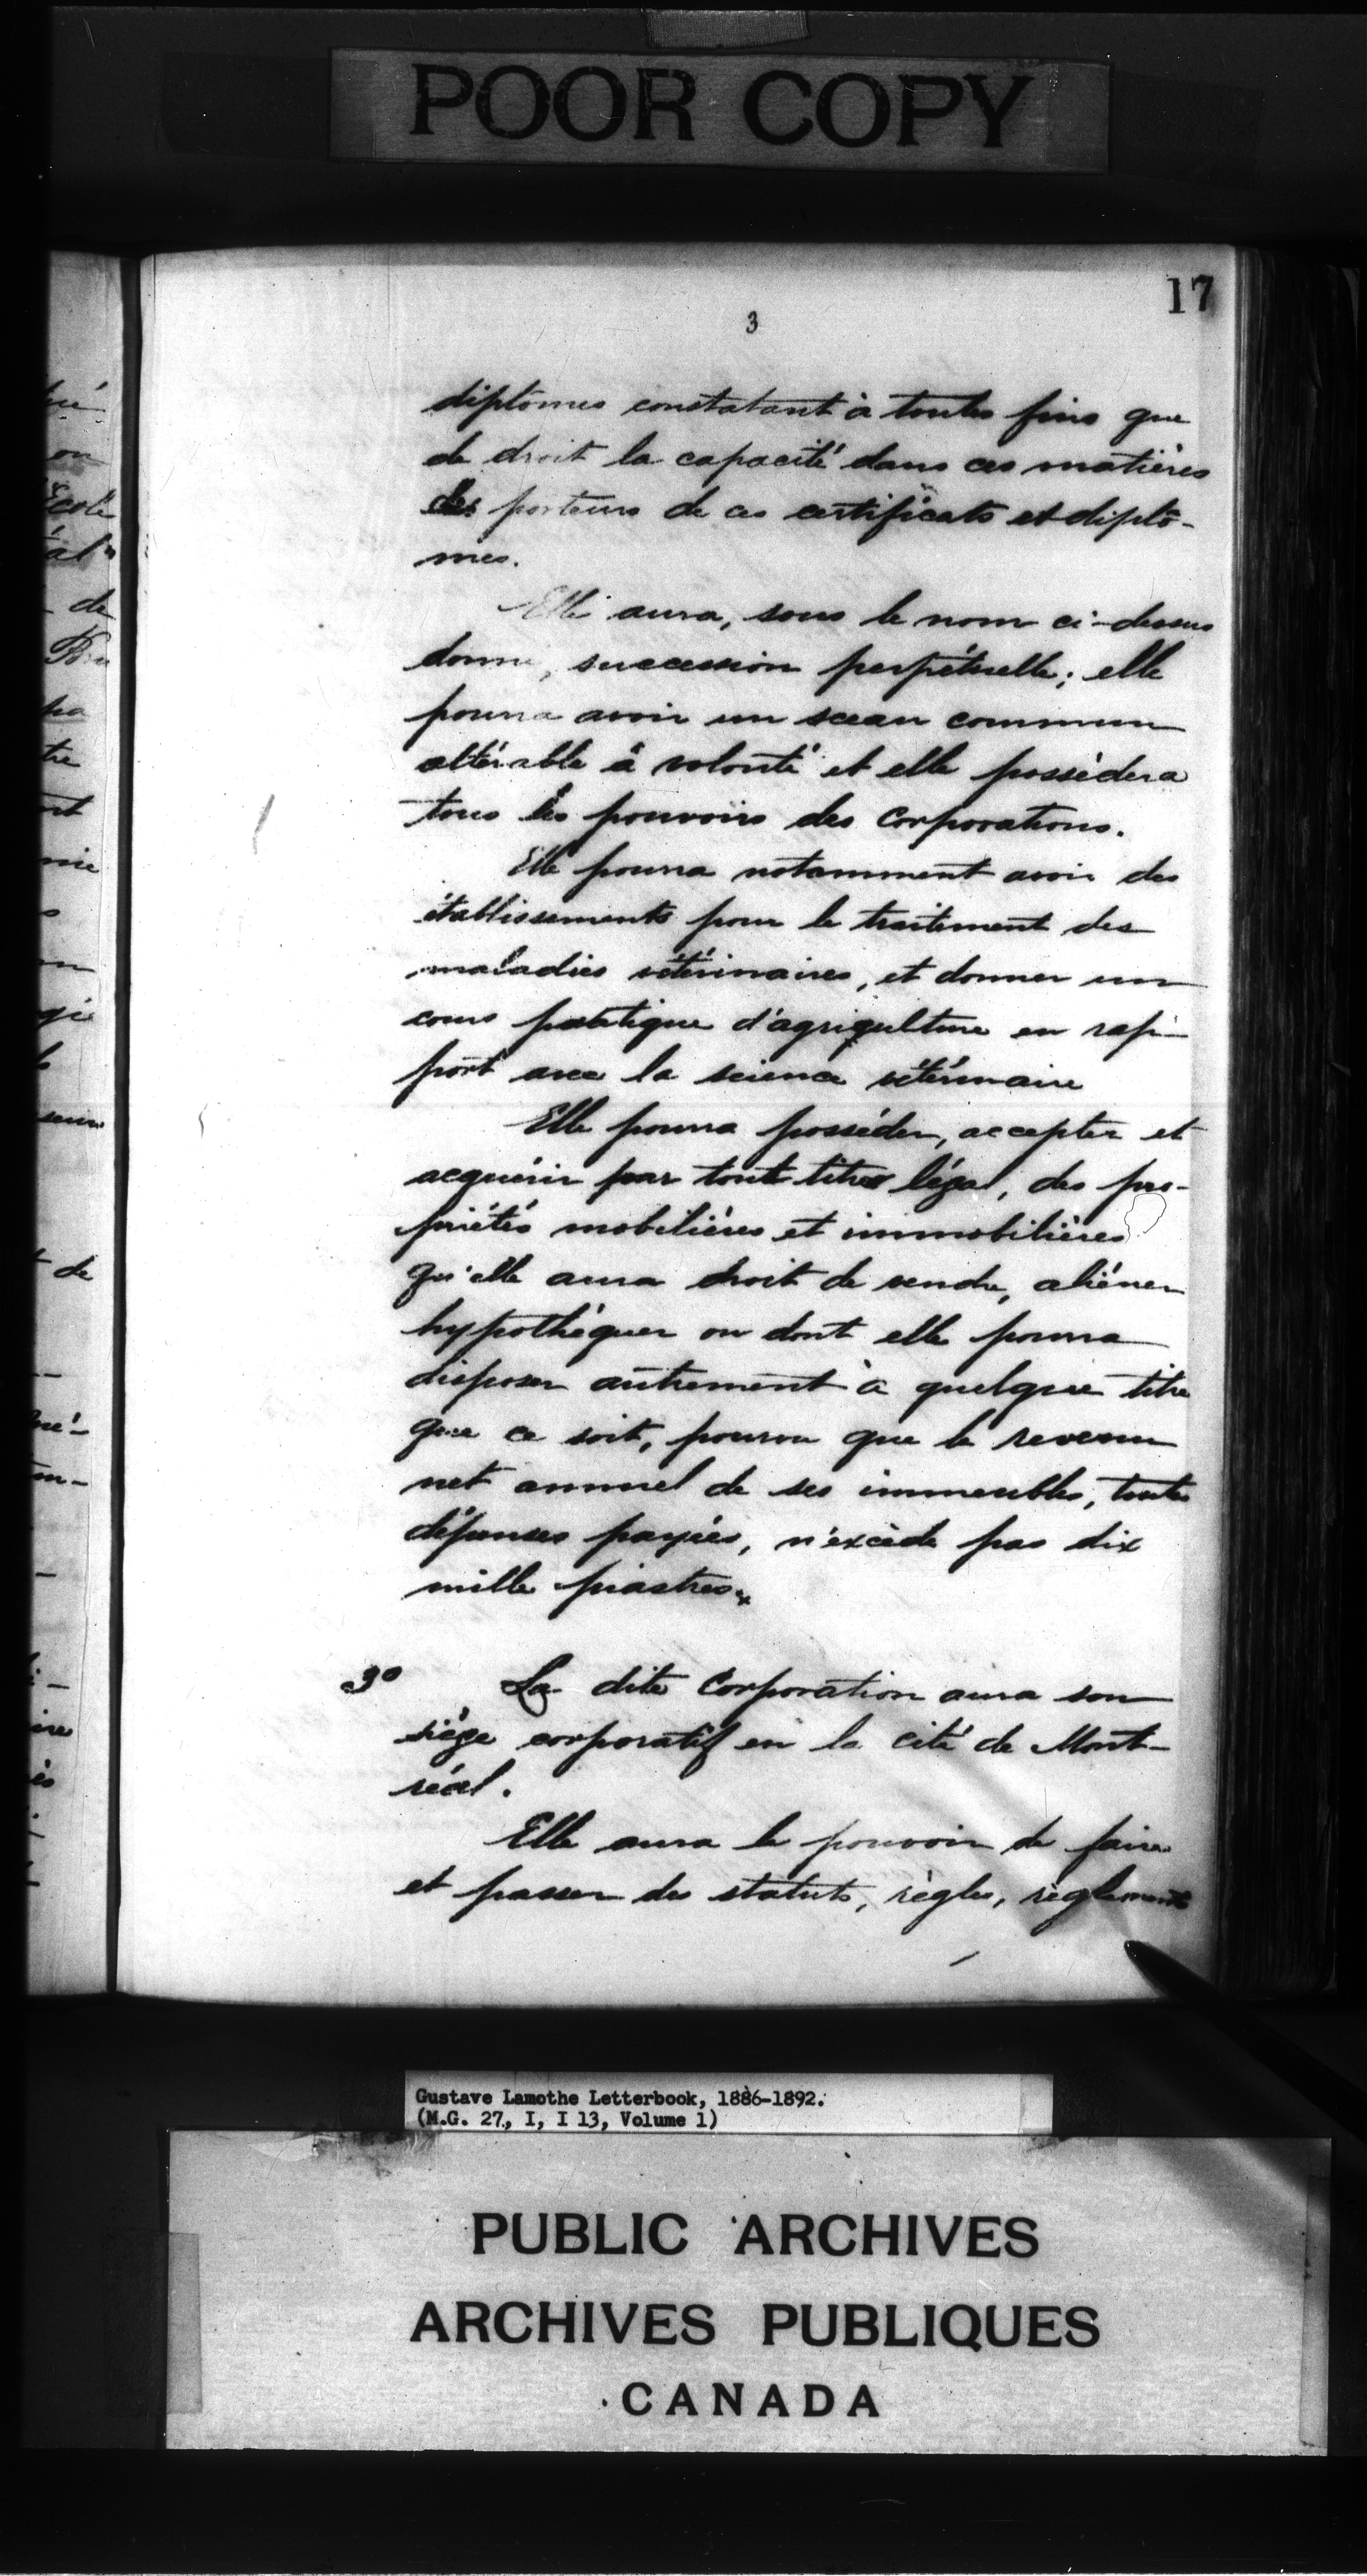 POOR COPY
17
3
diplômes constatant à toutes fins que
de droit la capacité dans ces matières
des porteurs de ces certificats et diplô-
mes.
Elle aura, sous le nom ci-dessus
donné, succession perpétuelle; elle
pourra avoir un sceau commun
altérable à volonté et elle possèdera
tous les pouvoirs des Corporations.
Elle pourra notamment avoir des
établissements pour le traitement des
maladies vétérinaires, et donner un
cours pratique d'agriculture en rap-
port avec la science vétérinaire
Elle pourra posséder, accepter et
acquérir par tout titre légal, des pro-
priétés mobilières et immobilières
qu'elle aura droit de vendre, aliéner
hypothéquer ou dont elle pourra
disposer autrement à quelque titre
que ce soit, pourvu que le revenu
net annuel de ses immeubles, toutes
dépenses payées, n'excède pas dix
mille piastres.
3o La dite Corporation aura son
siège corporatif en la cité de Mont-
réal.
Elle aura le pouvoir de faire
et passer des statuts, règles, règlements
Gustave Lamothe Letterbook, 1886-1892.
(M.G. 27, I, I 13, Volume 1)
PUBLIC ARCHIVES
ARCHIVES PUBLIQUES
CANADA